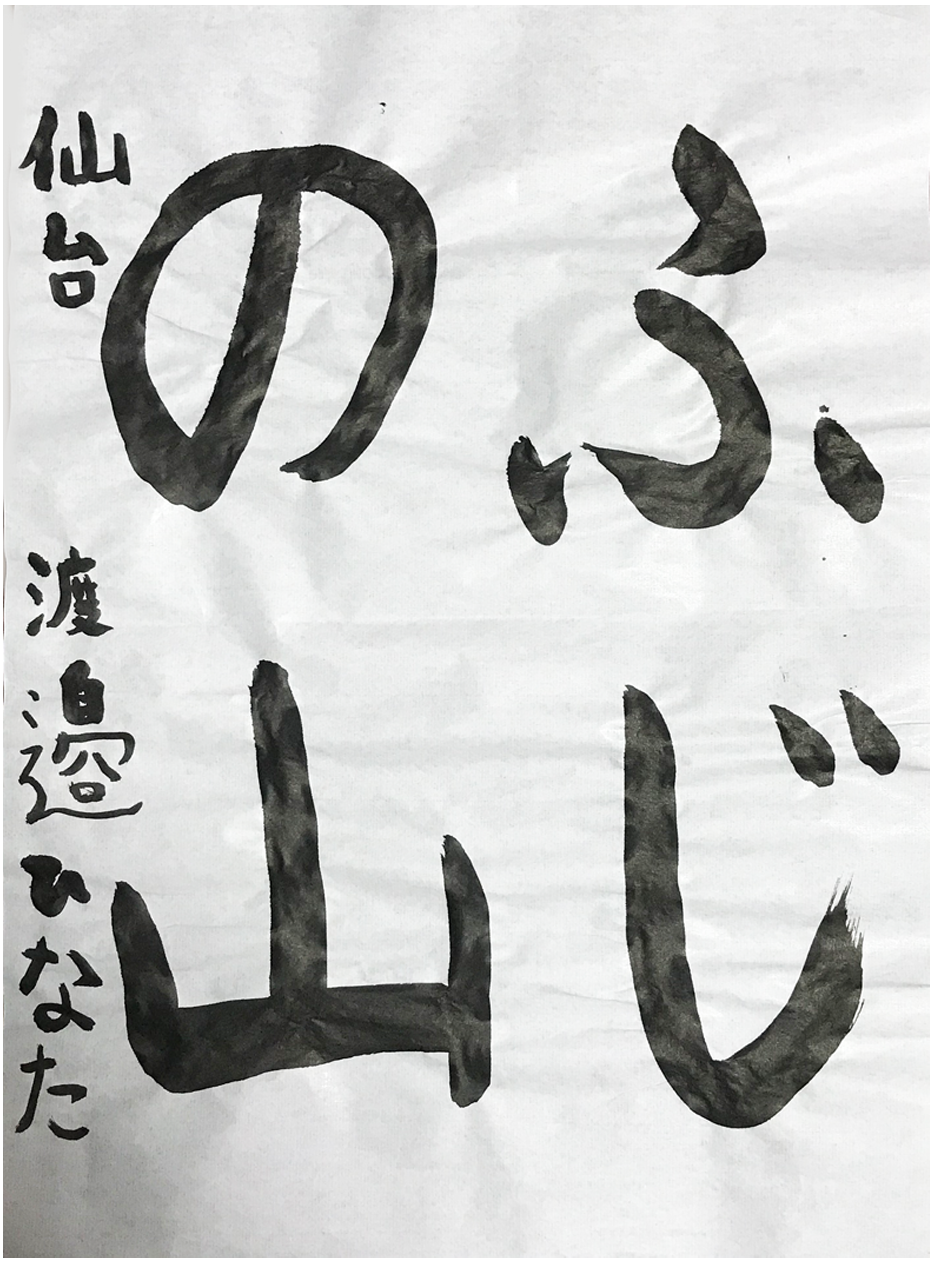 ふじ
の山
仙台 渡邉ひなた